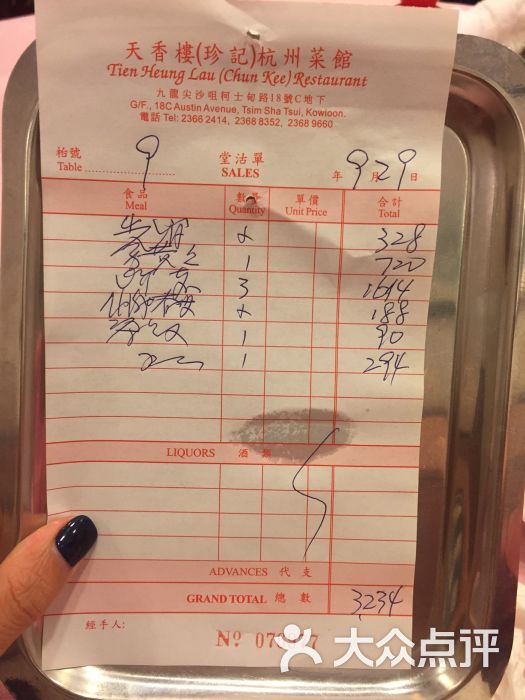 天香樓(珍記)杭州菜館
Tien Heung Lau (Chun Kee) Restaurant
九龍尖沙咀柯士甸路18號C地下
G/F., 18C Austin Avenue, Tsim Sha Tsui, Kowloon.
電話 Tel: 2368 2414, 2368 8352, 2368 9660
枱號 堂沽單
Table 9 SALES 年 9 月 29 日
食品 數量 單價 合計
Meal Quantity Unit Price Total
328
1 720
3 1614
188
1 90
1 294
LIQUORS 酒
ADVANCES 代支
GRAND TOTAL 總數 3234
經手人:
No
大众点评